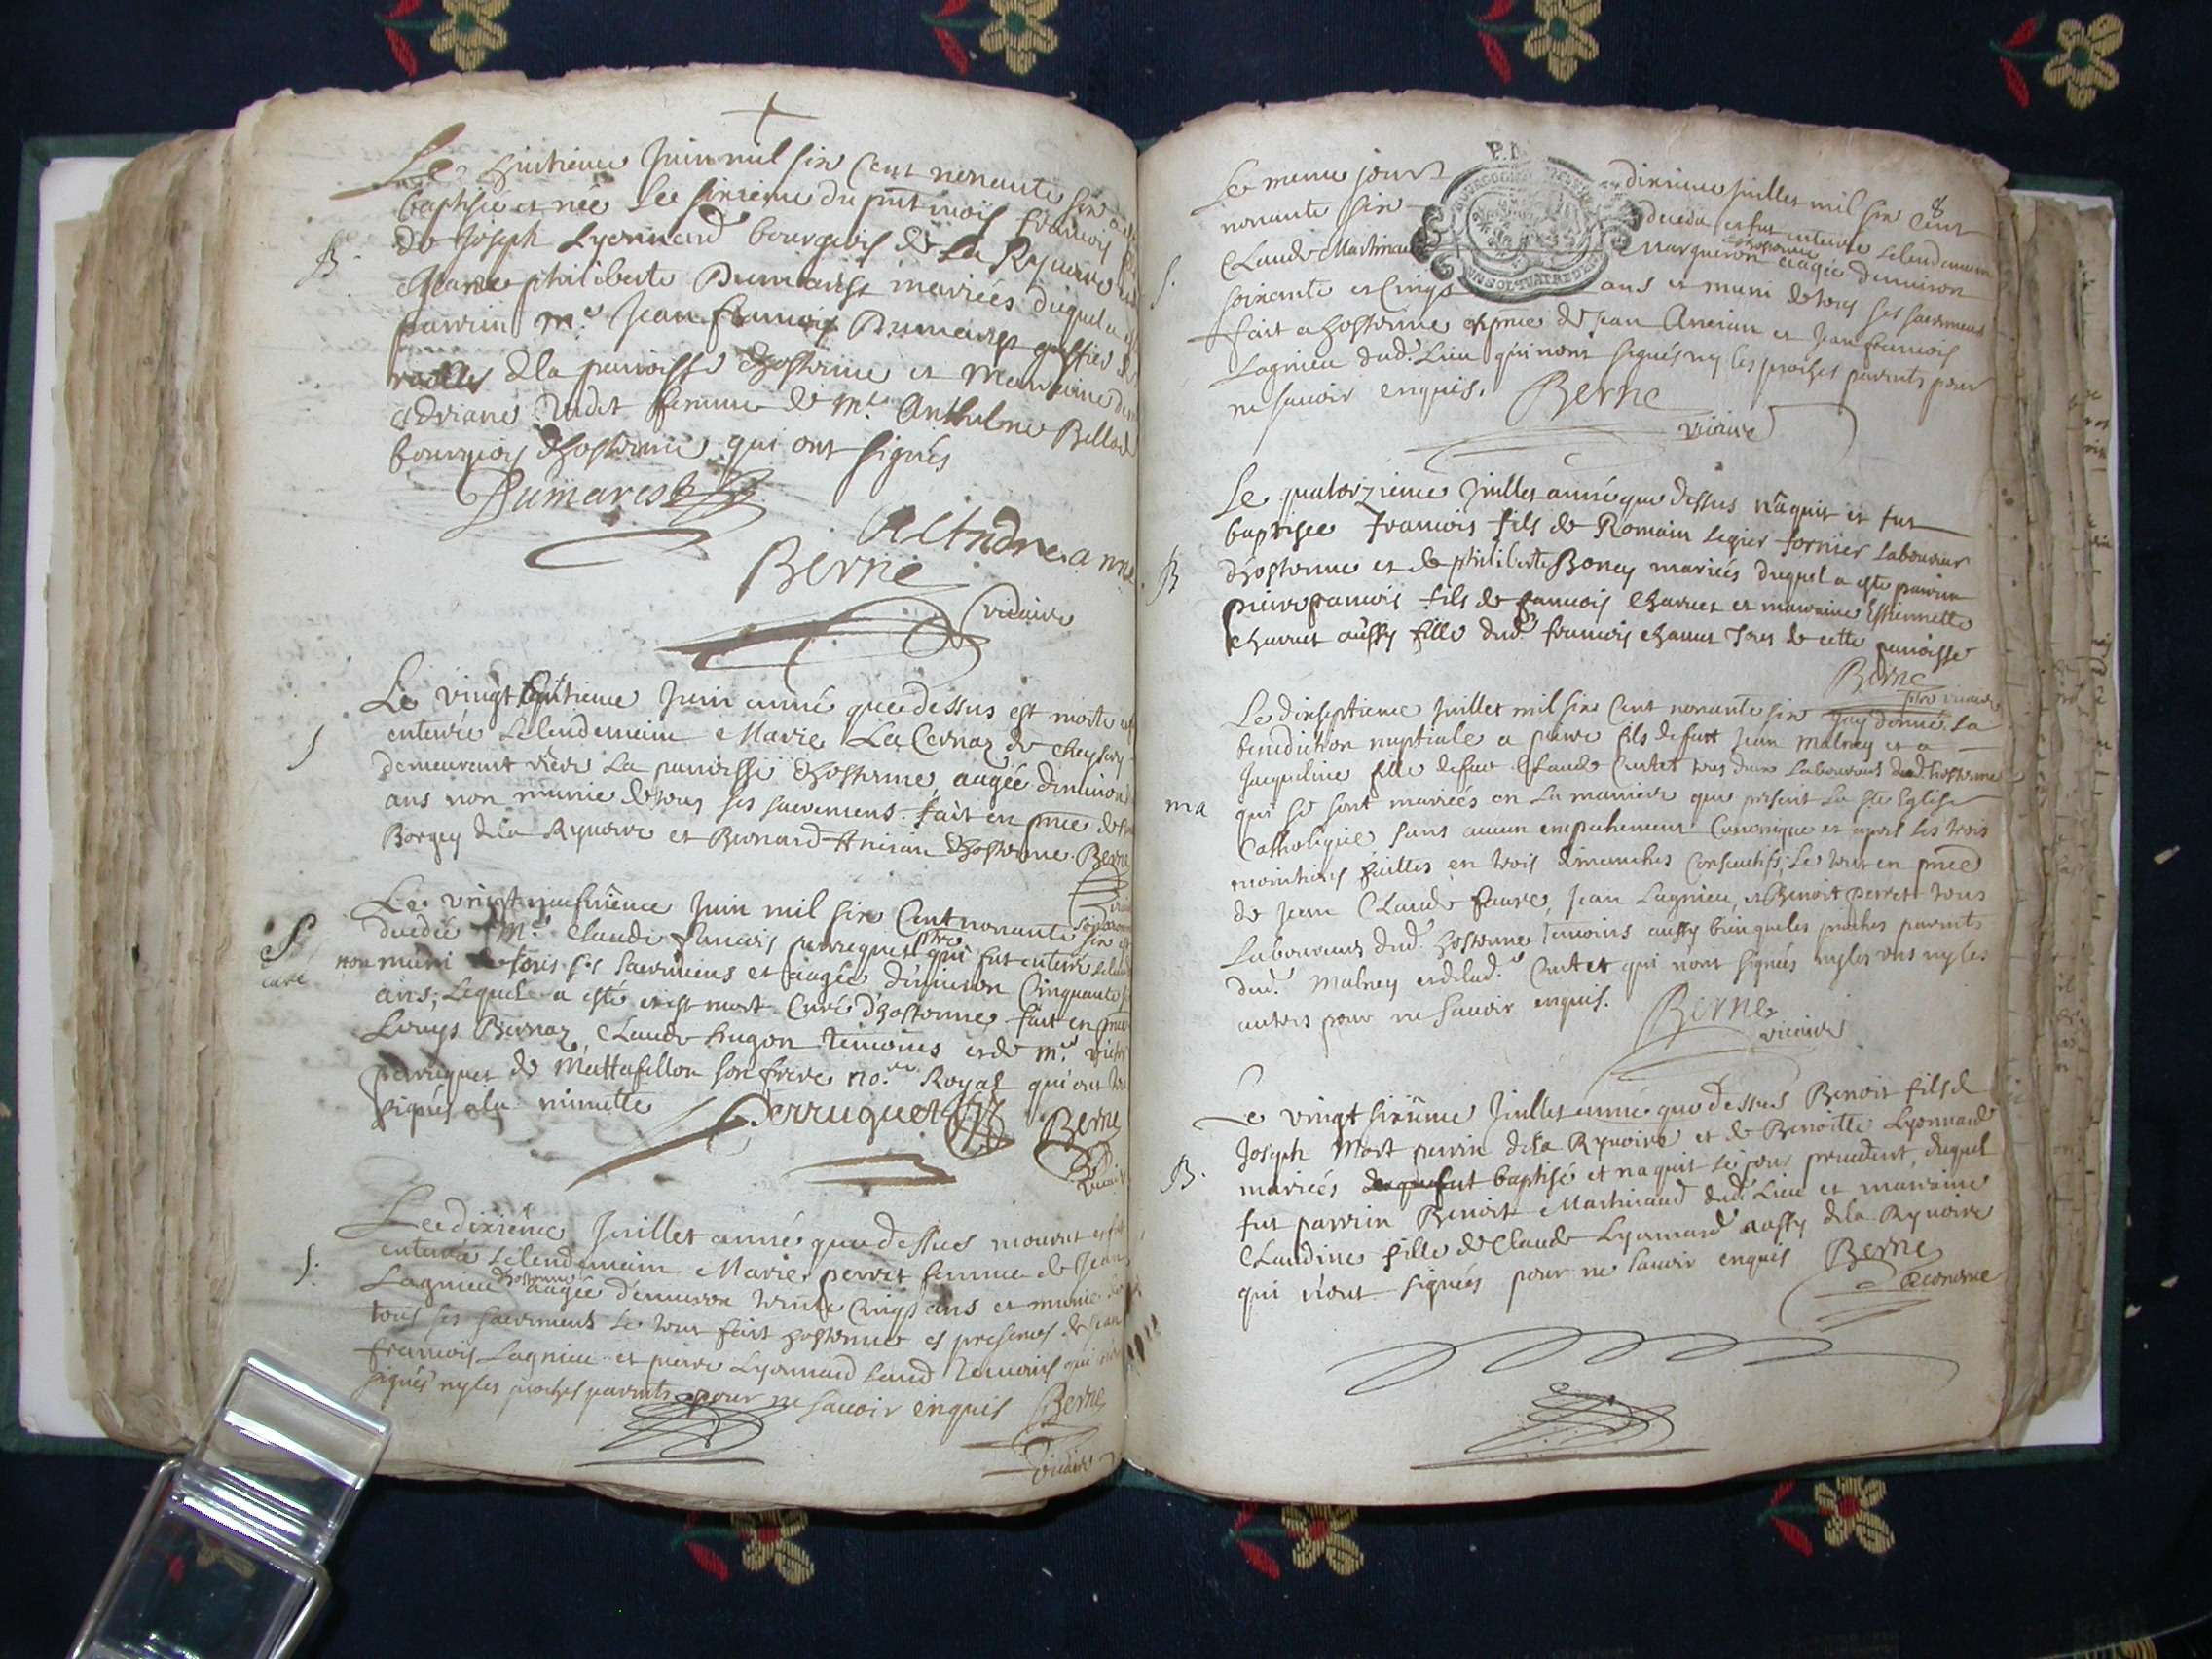 Le huitieme Juin mil six cent nonante six a esté
baptisée et née le sixieme du pnt mois francois
B.
de Joseph Lyonnard bourgeois de La Rynoire
Jeanne philiberte Dumarest mariées duquel a
parrin Mre Jean francois Dumarest greffier
de la paroisse d'hostonne et Marraine
Adriane femme de Mre Anthelme Belloud
bourgeois d'hostonne qui ont signés
Dumarest
Berne
vicaire
Le vingt huitieme Juin année que dessus est morte
S
enterrée Lelendemain Marie La Cernaz de Cheysery
demeurant riere La paroisse d'hostonne, aagée d'environ
ans non munie de tous ses sacremens. fait en pnce de
Borgey de la Rynoire et Bernard Ancian d'hostonne. Berne
Le vingt neufvième Juin mil six Cent nonante six
S
curé
decedé Mre Claude francois perruquet ptre qui fut enterré
non muni de tous ses sacremens et aagée d'environ Cinquante
ans; Lequel a esté et est mort Curé d'hostonne, fait en pnce
Louys Bernaz, Claude hugon temoins et de Mre
perruquet de Mattafellon son frere no.re Royal qui ont
signés a la minutte
Perruquet
Berne
vicaire
Le dixième Juillet année que dessus mourut
S.
enterrée Lelendemain Marie perret femme de Jean
Lagnieu d'hostonne aagée d'environ trente Cinqs ans et munie de
tous ses sacremens le tout fait hostonne es presences de Jean
francois Lagnieu et pierre Lyonnard Laud temoins qui n'ont
signés ny les proches parents pour ne sauoir enquis Berne
vicaire
Le meme jour dixieme Juillet mil six Cent
nonante six deceda et fut enterré Lelendemain
Claude Martinaud Marqueron d'hostonne aagée d'environ
S.
soixante et Cinqs ans et muni de tous ses sacremens
fait a hostonne es pnce de Jean Ancian et Jean francois
Lagnieu dud. Lieu qui n'ont signés ny les proches parents pour
ne sauoir enquis. Berne
vicaire
Le quatorzieme Juillet année que dessus nâquit et fut
baptisée francois fils de Romain Legier fornier Laboureur
B
d'hostonne et de philiberte Boney mariées duquel a esté parrin
pierre francois fils de francois Charvet et marraine Estiennette
Charvet aussy fille dud. francois Charvet Tous de cette paroisse
Berne
ptre vicaire
Le dixseptieme Juillet mil six Cent nonante six Jay donné La
benediction nuptiale a pierre fils de fust Jean Malney et a
Jacqueline fille de fut Claude Curtet tous deux Laboureurs dud. hostonne
ma
qui se sont mariées en La maniere que prescrit La Ste Eglise
Catholique, sans aucun empechement Canonique et apres les trois
monitions faittes en trois dimanches Consecutifs; Le tout en pnce
de Jean Claude faure, Jean Lagnieu, et Benoit perret tous
Laboureurs dud. hostonne temoins aussy bien que les proches parents
dud. Malney et de lad. Curtet qui n'ont signés ny les uns ny les
autres pour ne sauoir enquis. Berne
vicaire
Le vingt sixième Juillet année que dessus Benoit fils de
Joseph Mort perrin de la Rynoire et de Benoitte Lyonnard
B.
mariées baptisé et naquit le jour precedent, duquel
fut parrin Benoit Martinaud dud. Lieu et marraine
Claudine fille de Claude Lyonnard aussy de la Rynoire
qui n'ont signées pour ne sauoir enquis Berne
œconome